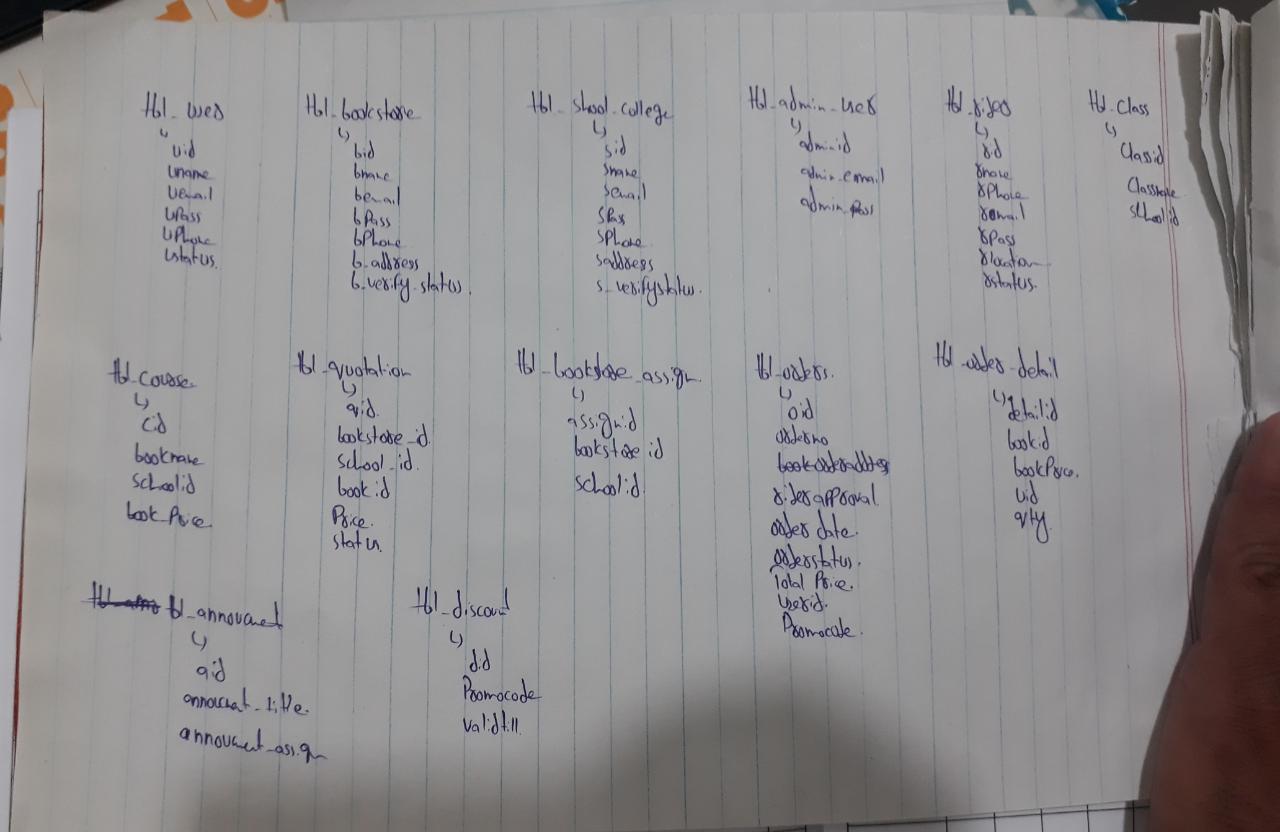 tbl_user
uid
uname
uemail
upass
uphone
ustatus.
tbl_bookstore
bid
bname
bemail
bpass
bphone
b_address
b_verify_status.
tbl_shool_college
sid
sname
semail
spass
sphone
saddress
s_verifystatus.
tbl_admin_user
adminid
admin_email
admin_pass
tbl_rider
rid
rname
rphone
remail
rpass
rlocation
rstatus.
tbl_class
classid
classname
schoolid
tbl_course
cid
bookname
schoolid
book_price
tbl_quotation
qid.
bookstore_id.
school_id.
book_id
price.
status.
tbl_bookstore_assign.
assignid
bookstore id
schoolid.
tbl_orders.
oid
orderno
bookorderaddress
riderapproval.
order date.
orderstatus.
Total Price.
userid.
Promocode.
tbl_order_detail
detailid
bookid
bookprice.
uid
qty.
tbl_annoucment
aid
annoucment_title.
annoucment_assign
tbl_discound
did
Promocode
validtill.